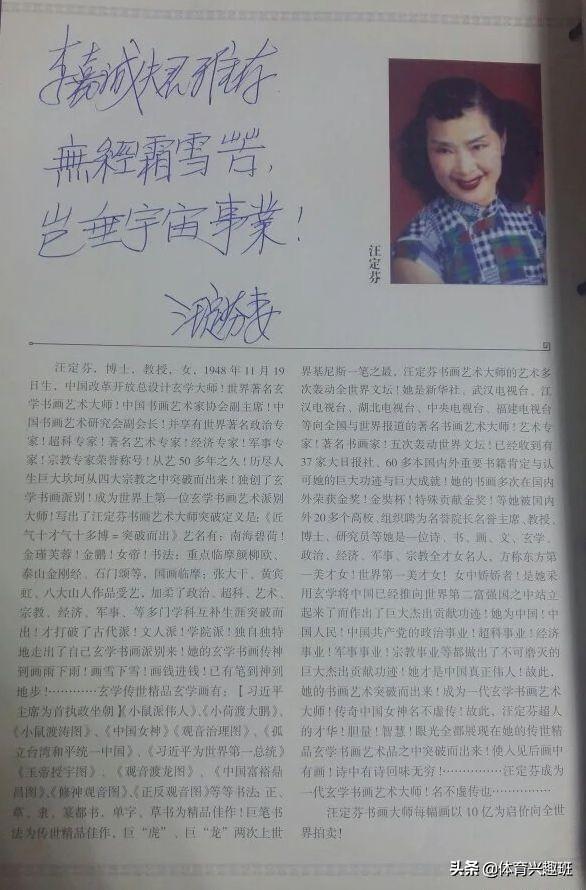 李嘉诚夫君雅存
無經霜雪苦,
岂垂宇宙事業!
汪定芬妻
汪定芬
汪定芬,博士,教授,女,1948年11月19
日生,中国改革开放总设计玄学大师!世界著名玄
学书画艺术大师!中国书画艺术家协会副主席!中
国书画艺术研究会副会长!并享有世界著名政治专
家!超科专家!著名艺术专家!经济专家!军事专
家!宗教专家荣誉称号!从艺50多年之久!历尽人
生巨大坎坷从四大宗教之中突破而出来!独创了玄
学书画派别!成为世界上第一位玄学书画艺术派别
大师!写出了汪定芬书画艺术突破定义是:《匠
气十才气十多博=突破而出》艺名有:南海碧荷!
金瑾芙蓉!金鹏!女帝!书法:重点临摩颜柳欧、
泰山金刚经、石门颂等,国画临摩:张大干、黄宾
虹、八大山人作品受艺,加柔了政治、超科、艺术、
宗教、经济、军事、等多门学科互补生涯突破而
出!才打破了古代派!文人派!学院派!独自独特
地走出了自己玄学书画派别来!她的玄学书画传神
到画雨下雨!画雪下雪!画钱进钱!已有笔到神到
地步!…………玄学传世精品玄学画有:【习近平
主席为首执政坐朝】《小鼠派伟人》、《小荷渡大鹏》、
《小鼠渡涛图》、《中国女神》《观音治理图》、《孤
立台湾和平统一中国》、《习近平为世界第一总统》
《玉帝授宇图》、《观音渡龙图》、《中国富裕鼎
昌图》、《修神观音图》、《正反观音图》等等书法:正、
草、隶、篆都书,单字,草书为精品佳作!巨笔书
法为传世精品佳作,巨“虎”、巨“龙”两次上世
界基尼斯一笔之最,汪定芬书画艺术大师的艺术多
次轰动全世界文坛!她是新华社、武汉电视台、江
汉电视台、湖北电视台、中央电视台、福建电视台
等向全国与世界报道的著名书画艺术大师!艺术专
家!著名书画家!五次轰动世界文坛!已经收到有
37家大日报社、60多本国内外重要书籍肯定与认
可她的巨大功迹与巨大成就!她的书画多次在国内
外荣获金奖!金奘杯!特殊贡献金奖!等她被国内
外20多个高校、组织聘为名誉院长名誉主席、教授、
博士、研究员等她是一位诗、书、画、文、玄学、
政治、经济、军事、宗教全才女名人,方称东方第
一美才女!世界第一美才女!女中娇娇者!是她采
用玄学将中国已经推向世界第二富强国之中站立
起来了而作出了巨大杰出贡献功迹!她为中国!中
国人民!中国共产党的政治事业!超科事业!经济
事业!军事事业!宗教事业等都做出了不可磨灭的
巨大杰出贡献功迹!她才是中国真正伟人!故此,
她的书画艺术突破而出来!成为一代玄学书画艺术
大师!传奇中国女神名不虚传!故此,汪定芬超人
的才华!胆量!智慧!眼光全部展现在她的传世精
品玄学书画艺术品之中突破而出来!使人见后画中
有画!诗中有诗回味无穷!……………汪定芬成为
一代玄学书画艺术大师!名不虚传也……………
汪定芬书画大师每幅画以10亿为启价向全世
界拍卖!
头条 @体育兴趣班